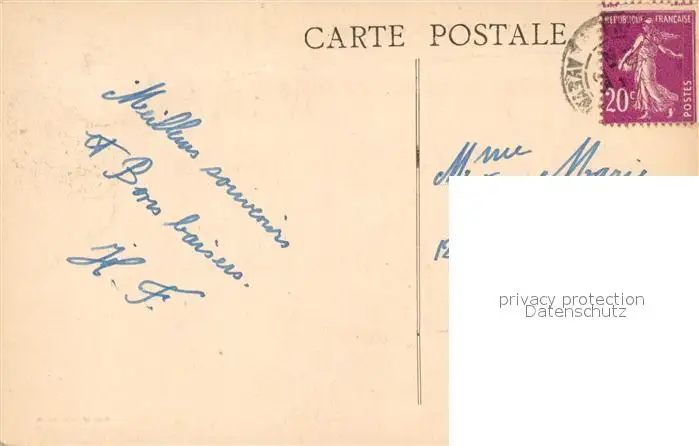 CARTE POSTALE
REPUBLIQUE FRANÇAISE
20c
POSTES
Meilleurs souvenirs
et Bons baisers.
H. F.
Mme Marie
12
privacy protection
Datenschutz